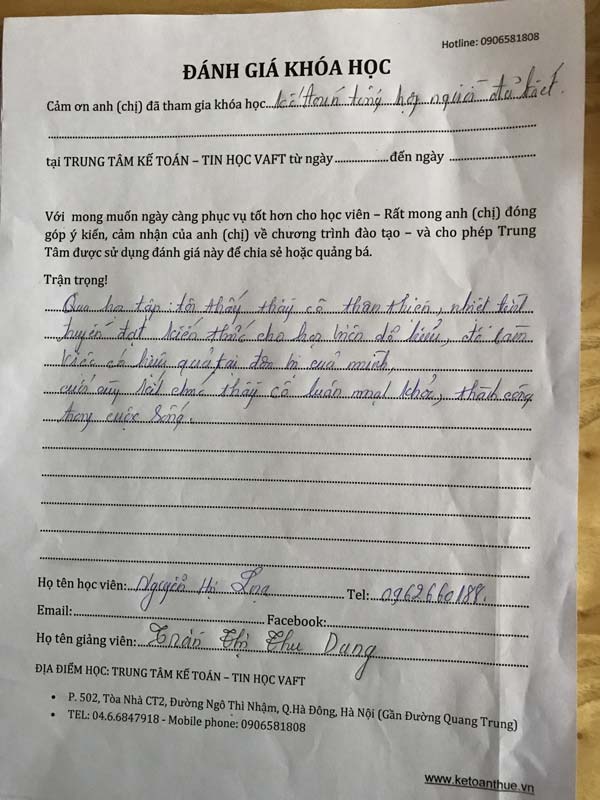 Hotline: 0906581808
ĐÁNH GIÁ KHÓA HỌC
Cảm ơn anh (chị) đã tham gia khóa học kế toán tổng hợp người đã biết.
tại TRUNG TÂM KẾ TOÁN – TIN HỌC VAFT từ ngày ................. đến ngày .................
Với mong muốn ngày càng phục vụ tốt hơn cho học viên – Rất mong anh (chị) đóng
góp ý kiến, cảm nhận của anh (chị) về chương trình đào tạo – và cho phép Trung
Tâm được sử dụng đánh giá này để chia sẻ hoặc quảng bá.
Trận trọng!
Qua học tập tôi thấy thầy cô thân thiện, nhiệt tình
truyền đạt kiến thức cho học viên dễ hiểu, để làm
việc có hiệu quả tại đơn vị của mình,
cuối cùng chúc thầy cô luôn mạnh khỏe, thành công
trong cuộc sống.
Họ tên học viên: Nguyễn Tel: 0962660188.
Email: Facebook:
Họ tên giảng viên: Trần Thị Thu Dung
ĐỊA ĐIỂM HỌC: TRUNG TÂM KẾ TOÁN – TIN HỌC VAFT
• P. 502, Tòa Nhà CT2, Đường Ngô Thì Nhậm, Q.Hà Đông, Hà Nội (Gần Đường Quang Trung)
• TEL: 04.6.6847918 - Mobile phone: 0906581808
www.ketoanthue.vn